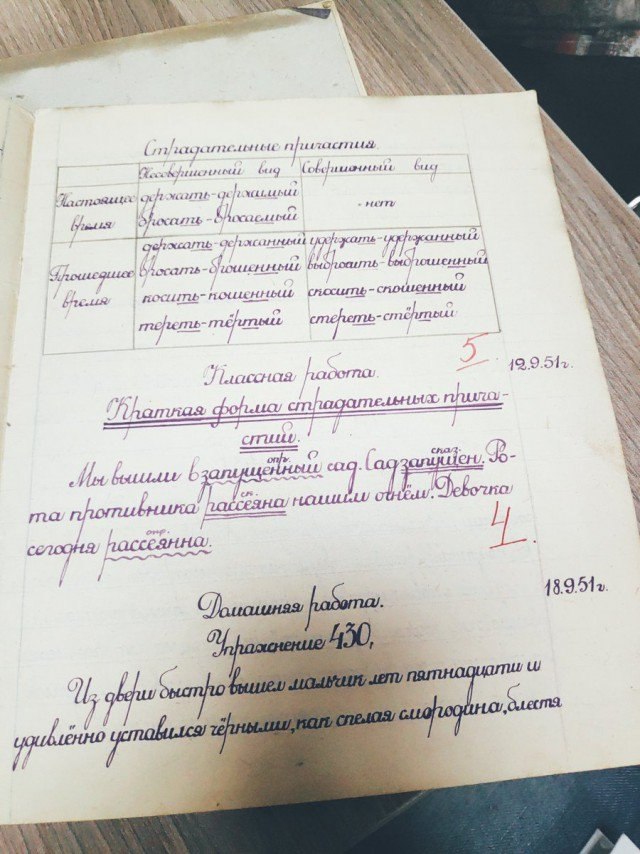 Страдательные причастия.
Несовершенный вид Совершенный вид
Настоящее время держать-держимый нет
бросать-бросаемый
Прошедшее время держать-держанный удержать-удержанный
бросать-брошенный выбросить-выброшенный
косить-кошенный скосить-скошенный
тереть-тёртый стереть-стёртый
5
Классная работа. 12.9.51г.
Краткая форма страдательных прича-
стий.
опр. сказ.
Мы вышли в запущенный сад. Сад запущен. Ро-
ск.
та противника рассеяна нашим огнём. Девочка
опр.
сегодня рассеянна.
4
Домашняя работа. 18.9.51г.
Упражнение 430,
Из двери быстро вышел мальчик лет пятнадцати и
удивлённо уставился чёрными, как спелая смородина, блестя